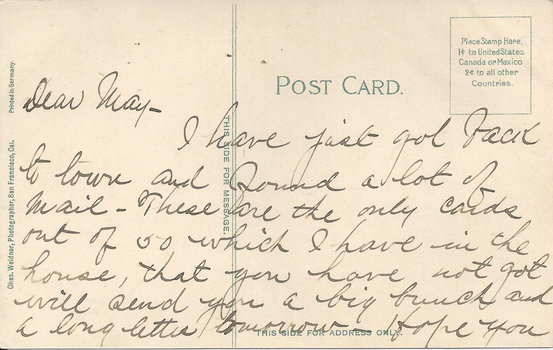 Place Stamp Here,
1¢ to United States
Canada or Mexico
2¢ to all other
Countries.
POST CARD.
Printed in Germany.
Chas. Weidner, Photographer, San Francisco, Cal.
THIS SIDE FOR MESSAGE.
Dear May—
I have just got back
to town and found a lot of
mail – These are the only cards
out of 50 which I have in the
house, that you have not got
will send you a big bunch and
a long letter tomorrow – Hope you
THIS SIDE FOR ADDRESS ONLY.